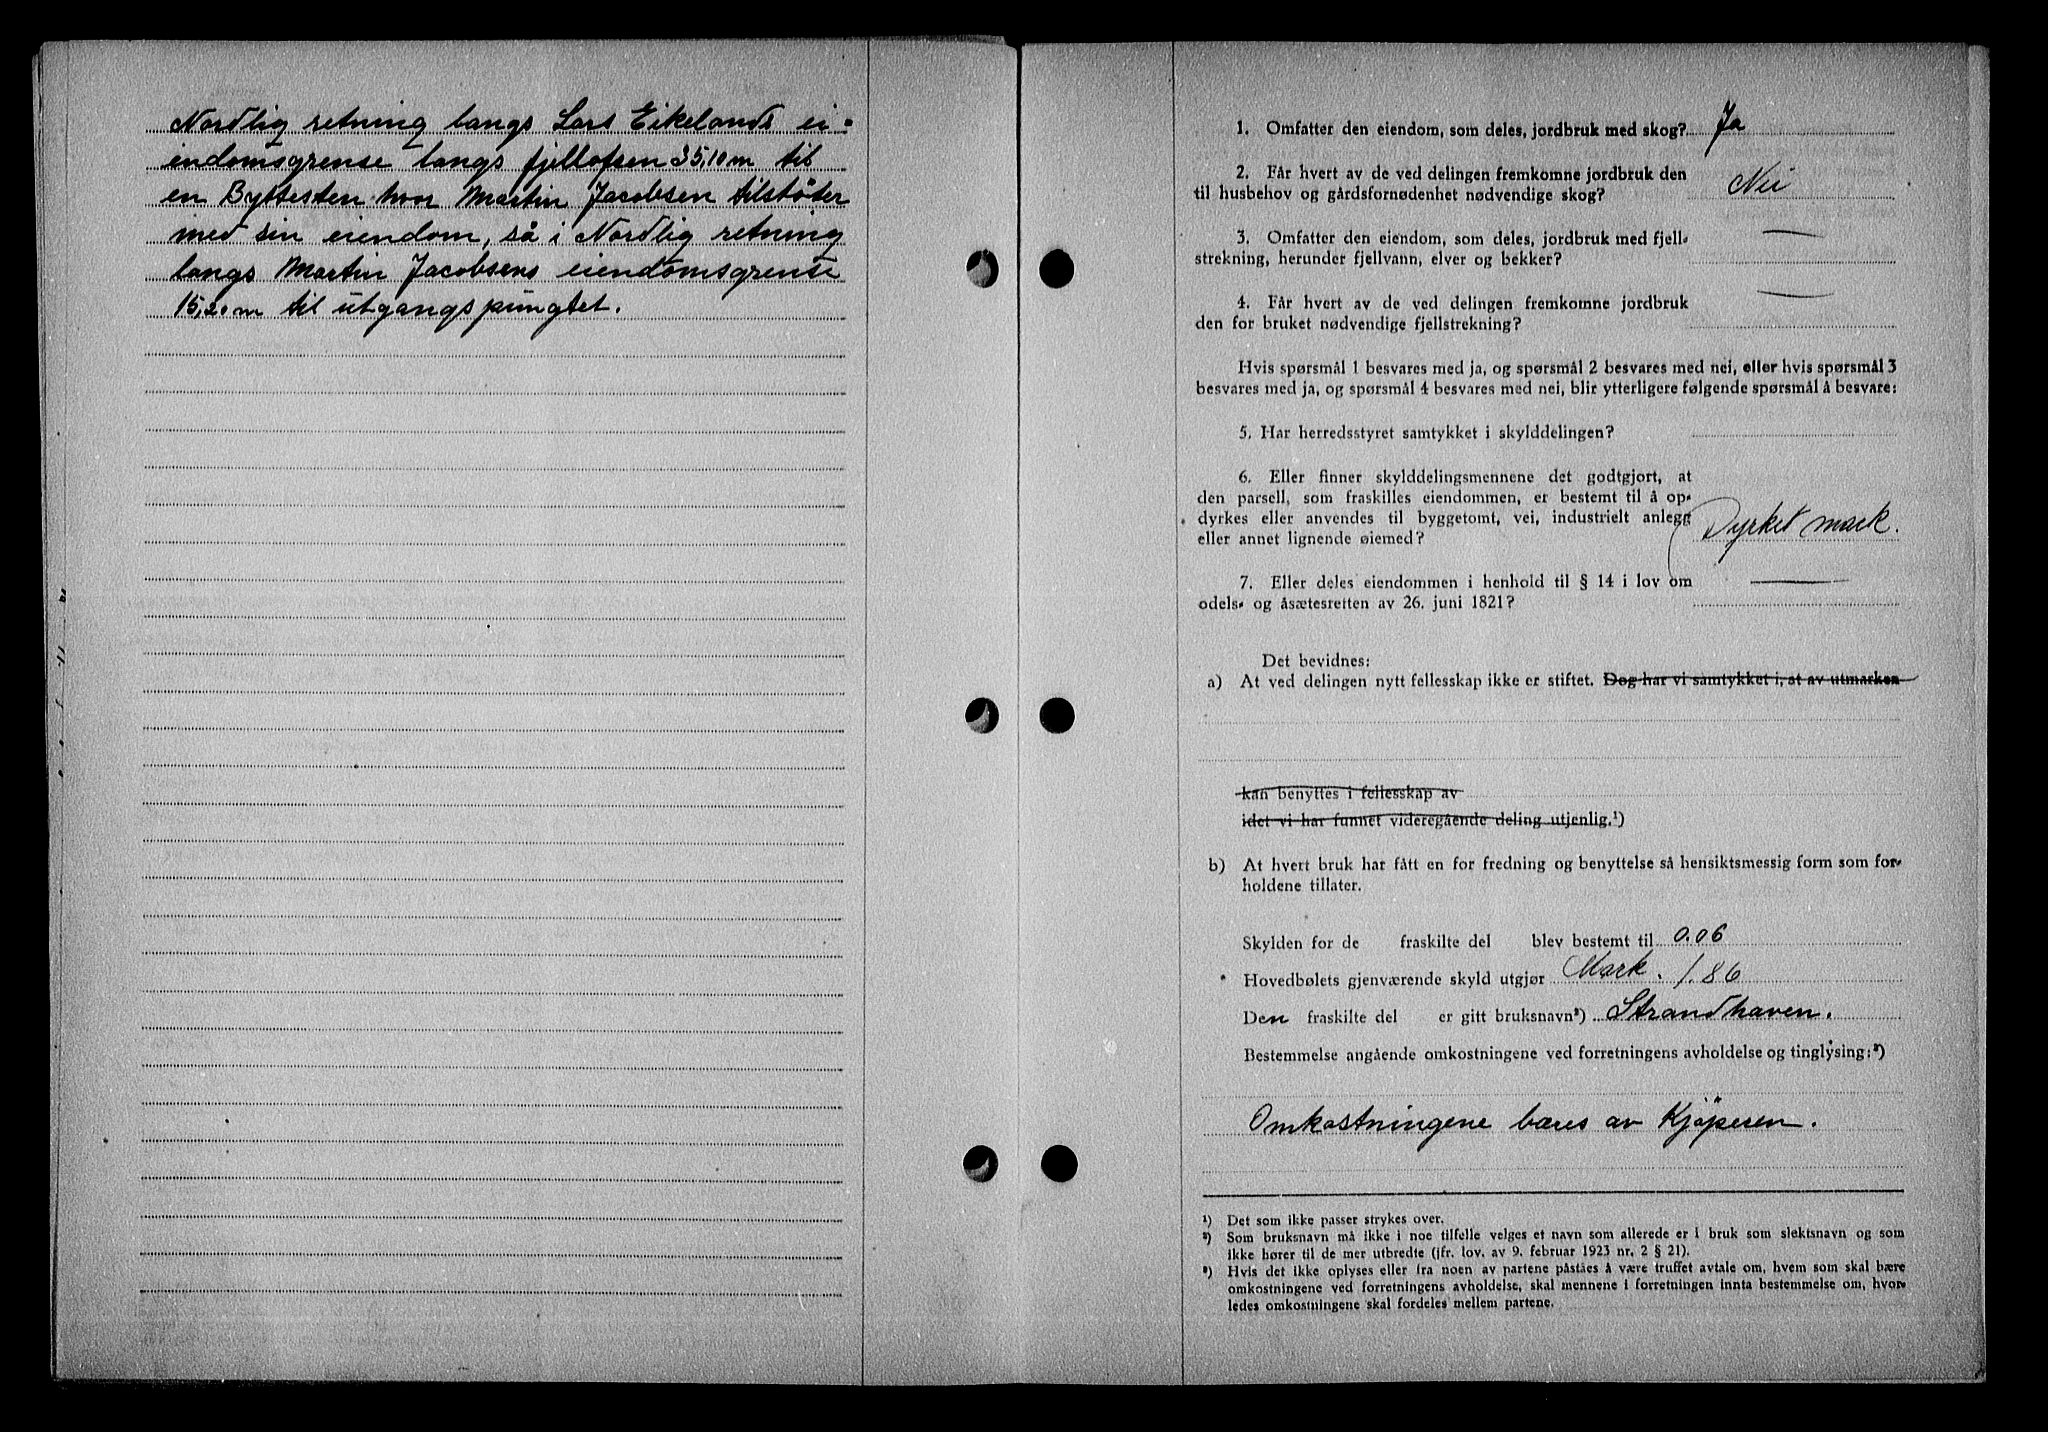 Nordlig retning langs Lars Eikelands ei-
endomsgrense langs fjellofsen 35,10 m til
en Byttesten hvor Martin Jacobsen tilstöter
med sin eiendom, så i Nordlig retning
langs Martin Jacobsens eiendomsgrense
15,20 m til utgangspungtet.
1. Omfatter den eiendom, som deles, jordbruk med skog? Ja
2. Får hvert av de ved delingen fremkomne jordbruk den
til husbehov og gårdsfornødenhet nødvendige skog? Nei
3. Omfatter den eiendom, som deles, jordbruk med fjell-
strekning, herunder fjellvann, elver og bekker? —
4. Får hvert av de ved delingen fremkomne jordbruk
den for bruket nødvendige fjellstrekning? —
Hvis spørsmål 1 besvares med ja, og spørsmål 2 besvares med nei, eller hvis spørsmål 3
besvares med ja, og spørsmål 4 besvares med nei, blir ytterligere følgende spørsmål å besvare:
5. Har herredsstyret samtykket i skylddelingen?
6. Eller finner skylddelingsmennene det godtgjort, at
den parsell, som fraskilles eiendommen, er bestemt til å op-
dyrkes eller anvendes til byggetomt, vei, industrielt anlegg
eller annet lignende øiemed? Dyrket mark.
7. Eller deles eiendommen i henhold til § 14 i lov om
odels- og åsætesretten av 26. juni 1821? —
Det bevidnes:
a) At ved delingen nytt fellesskap ikke er stiftet. Dog har vi samtykket i, at av utmarken
kan benyttes i fellesskap av
idet vi har funnet videregående deling utjenlig.¹)
b) At hvert bruk har fått en for fredning og benyttelse så hensiktsmessig form som for-
holdene tillater.
Skylden for de fraskilte del blev bestemt til 0.06
Hovedbølets gjenværende skyld utgjør Mark. 1.86
Den fraskilte del er gitt bruksnavn²) Strandhaven.
Bestemmelse angående omkostningene ved forretningens avholdelse og tinglysing:³)
Omkostningene bæres av Kjöperen.
¹) Det som ikke passer strykes over.
²) Som bruksnavn må ikke i noe tilfelle velges et navn som allerede er i bruk som slektsnavn og som
ikke hører til de mer utbredte (jfr. lov. av 9. februar 1923 nr. 2 § 21).
³) Hvis det ikke oplyses eller fra noen av partene påståes å være truffet avtale om, hvem som skal bære
omkostningene ved forretningens avholdelse, skal mennene i forretningen innta bestemmelse om, hvor-
ledes omkostningene skal fordeles mellem partene.